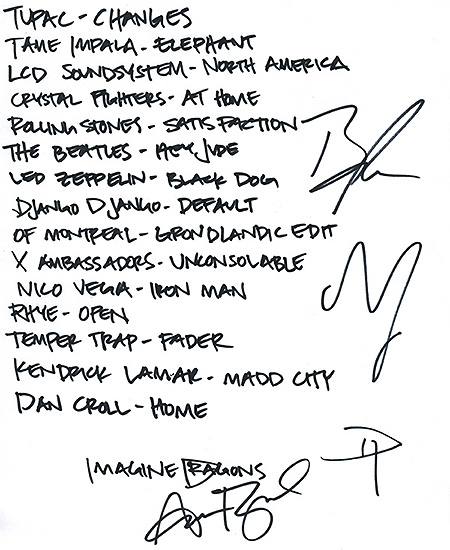 TUPAC - CHANGES
TAME IMPALA - ELEPHANT
LCD SOUNDSYSTEM - NORTH AMERICA
CRYSTAL FIGHTERS - AT HOME
ROLLING STONES - SATISFACTION
THE BEATLES - HEY JUDE
LED ZEPPELIN - BLACK DOG
DJANGO DJANGO - DEFAULT
OF MONTREAL - GRONDLANDIC EDIT
X AMBASSADORS - UNCONSOLABLE
NICO VEGA - IRON MAN
RHYE - OPEN
TEMPER TRAP - FADER
KENDRICK LAMAR - MADD CITY
DAN CROLL - HOME
IMAGINE DRAGONS